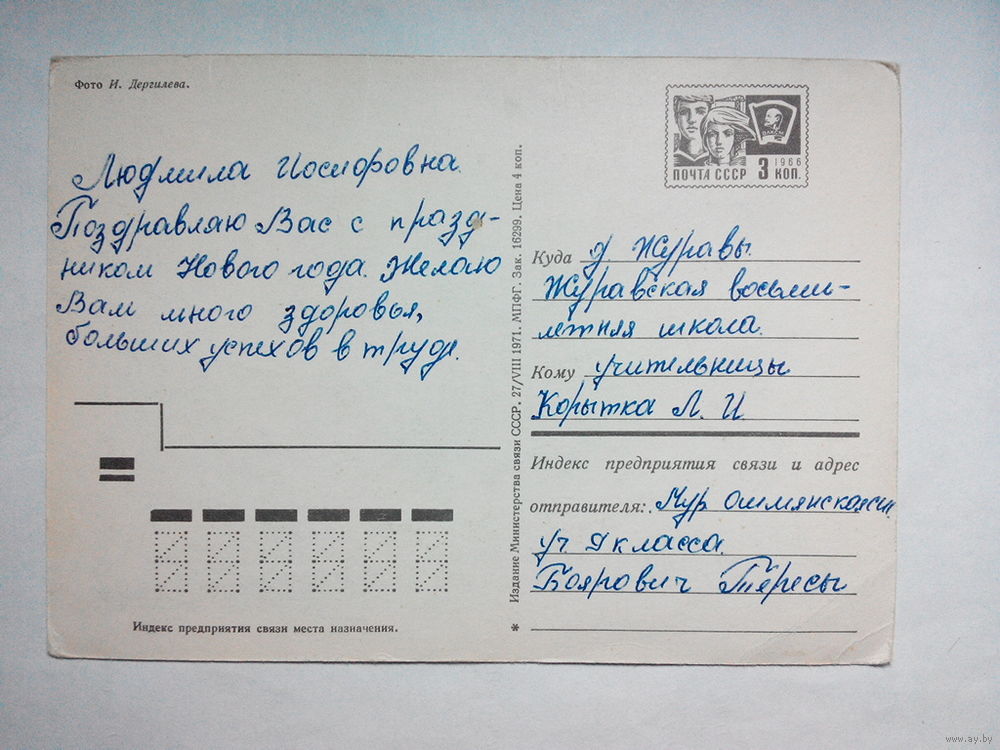 Фото И. Дергилева.
Людмила Иосифовна.
Поздравляю Вас с празд-
ником Нового года. Желаю
Вам много здоровья,
больших успехов в труде.
Индекс предприятия связи места назначения.
Издание Министерства связи СССР. 27/VIII 1971. МПФГ. Зак. 16299. Цена 4 коп.
ВЛКСМ
1966
ПОЧТА СССР 3 КОП.
Куда д. Журавы.
Журавская восьми-
летняя школа.
Кому учительницы
Корытка Л. И.
Индекс предприятия связи и адрес
отправителя:
уч. 9 класса.
Боярович Тересы
*
www.ay.by